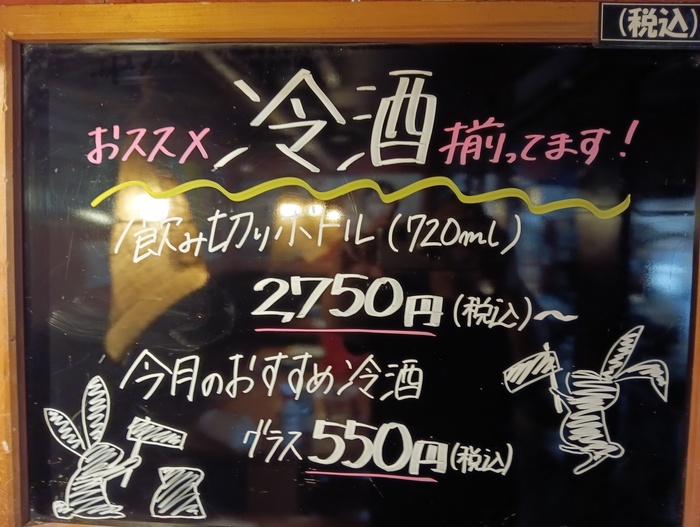 (税込)
おススメ冷酒揃ってます!
飲み切りボトル(720ml)
2,750円(税込)~
今月のおすすめ冷酒
グラス550円(税込)